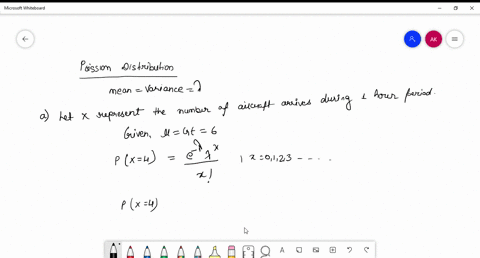 Microsoft Whiteboard
AK
Poission Distribution
mean = Variance = λ
a) Let x represent the number of aircraft arrives during 1 hour period.
Given, μ = 6t = 6
P(x=4) = e^-λ λ^x / x! , x = 0,1,2,3 - - - - .
P(x=4)